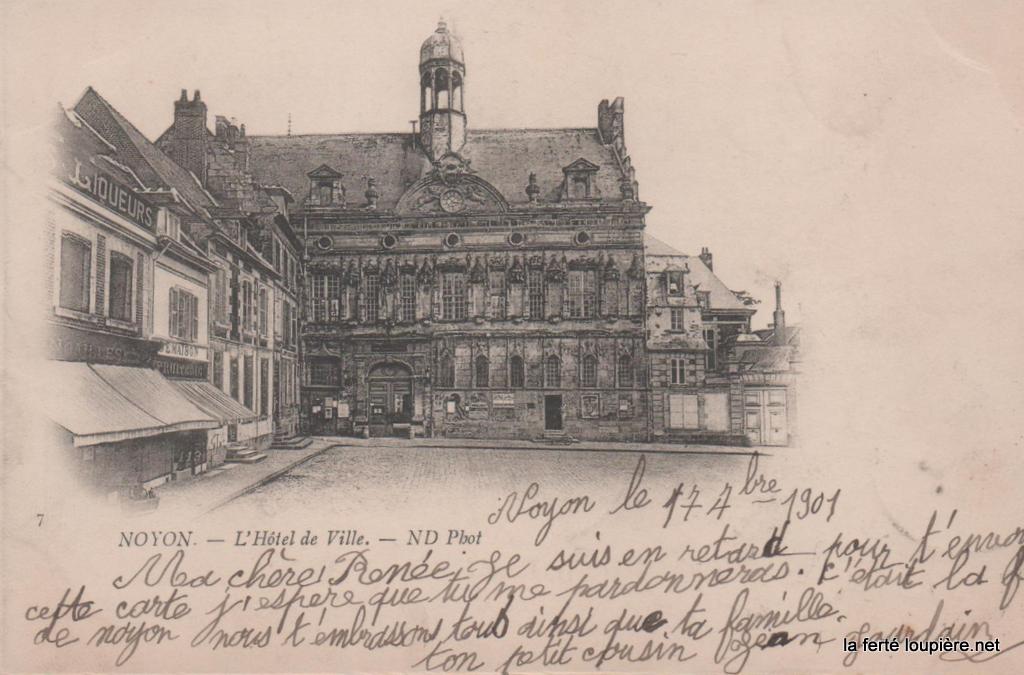 LIQUEURS
7
NOYON. — L'Hôtel de Ville. — ND Phot
Noyon le 17 7bre 1901
Ma chère Renée, Je suis en retard pour t'envoy
cette carte j'espère que tu me pardonneras. c'était la f
de noyon nous t'embrassons tous ainsi que ta famille.
ton petit cousin Jean
la ferté loupière.net